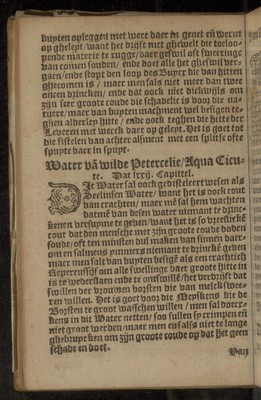 buyten opleggen met werc daer in genet en̄ wermt
op gheleyt / want het drijft met ghewelt die toeloo-
pende materie te rugge / daer geswil oft sweeringe
van comen souden / ende doet alle het gheswil ver-
gaen / ende stopt den loop des Buycx die van hitten
ghecomen is / maer men sals niet meer dan twee
oncen drincken / ende dat oock niet dickwijls om
zijn seer groote coude die schadelic is voor die na-
ture / maer van buyten machment wel besigen te-
ghen alderley hitte / ende oock teghen die hitte der
Leveren met werck daer op geleyt. Het is goet tot
die fistelen van achter als ment met een splitse ofte
spuyte daer in spuyt.
Water vā wilde Petercelie / Aqua Cicu-
te. Dat lxxij. Capittel.
DIt Water sal oock gedistileert wesen als
Seeliusen Water / want het is oock cout
van crachten / maer mē sal hem wachten
datmē van desen water niemant te drinc-
kenen versuyme te geven / want het is so vreeslicke
cout dat den mensche met zijn groote coude dooden
soude / oft ten minsten dul maken van sinnen daer-
om en salmens nimmers niemant te drincke geven
maer men sals van buyten besigē als een crachtich
Repercussijf om alle swellinge daer groote hitte in
is te wederslaen ende te ontsuille / het verdrijft dat
swillen der vrouwen borsten die van melck swee-
ren willen. Het is goet voor die Meyskens die de
Borsten te groot wasschen willen / men sal doecx-
kens in dit Water netten / soo sullen sy crimpen en̄
niet groot werden / maer men en sals niet te lange
ghebruycken om zijn groote coude op dat het geen
schade en doet.
Van